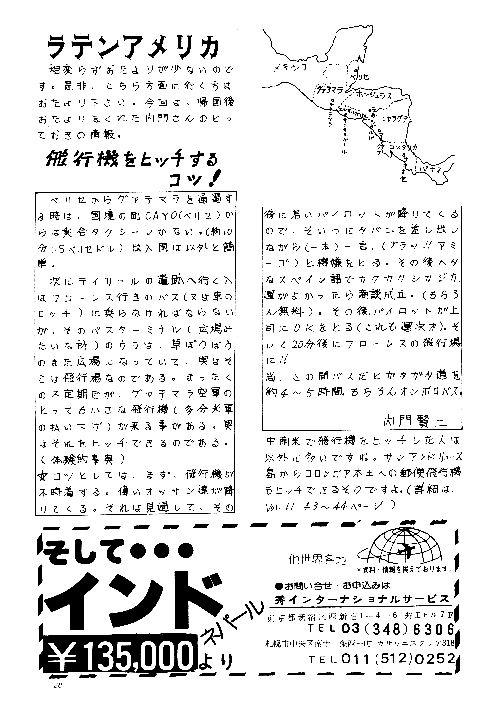 ラテンアメリカ
相変らずおたよりが少ないので
す。是非、こちら方面に行く方は
おたより下さい。今回は、帰国後
おたよりをくれた内門さんのとっ
ておきの情報。
飛行機をヒッチする
コツ！
メキシコ
ベリセ
グァテマラ
ホンジュラス
ニカラグァ
コスタリカ
パナマ
ベリセからグァテマラを通過す
る時は、国境の町CAYO(ベリセ)か
らは乗合タクシーがない。(約10
分1.5ベリセドル)は入国は以外と簡
単。
次にティカールの遺跡へ行く人
はフローレス行きのバス(又は車の
ヒッチ)に乗らなければならない
が、そのバスターミナル(広場み
たいな所)のウラは、草ぼうぼう
のまた広場になっていて、実はそ
こは飛行場なのである。まったく
の不定期だが、グァテマラ空軍の
とっても小さな飛行機(多分米軍
の払い下げ)が来る事がある。実
はそれをヒッチできるのである。
(体験的事典)
コツとしては、まず、飛行機が
不時着する。偉いオッサン達が降
りてくる。それは見過して、その
後に若いパイロットが降りてくる
ので、そいつにタバコを差し出し
ながら(一本)一言、(グラッツアミ
ーゴ)と機嫌をとる。その後ヘタ
なスペイン語でカクカクシカジカ、
運がよかったら商談成立。(もちろ
ん無料)。その後パイロットが上
司にOKをとる(これも運次オ)。そ
して20分後にフローレスの飛行場
に!!
尚、この間バスだとガタガタ道を
約4〜5時間。もちろんオンボロバス。
内門賢二
中南米で飛行機をヒッチした人は
以外に多いですね。サンアンドレス
島からコロンビア本土への郵便飛行機
もヒッチできるそうですよ。(詳細は、
Vol.11 43〜44ページ)
そして•••
インド
ネパール
¥135,000より
他世界各地
※資料・情報を揃えております。
●お問い合せ・お申込みは
秀インターナショナルサービス
TEL03(348)6306
TEL011(512)0252